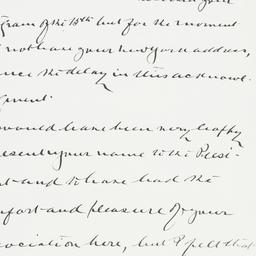 gram of the 13th but for the moment
not have your New York address,
nce the delay in this acknowl-
gment.
would have been very happy
resent your name to the Presi-
t and to have had the
mfort and pleasure of your
sociation here, but I felt that